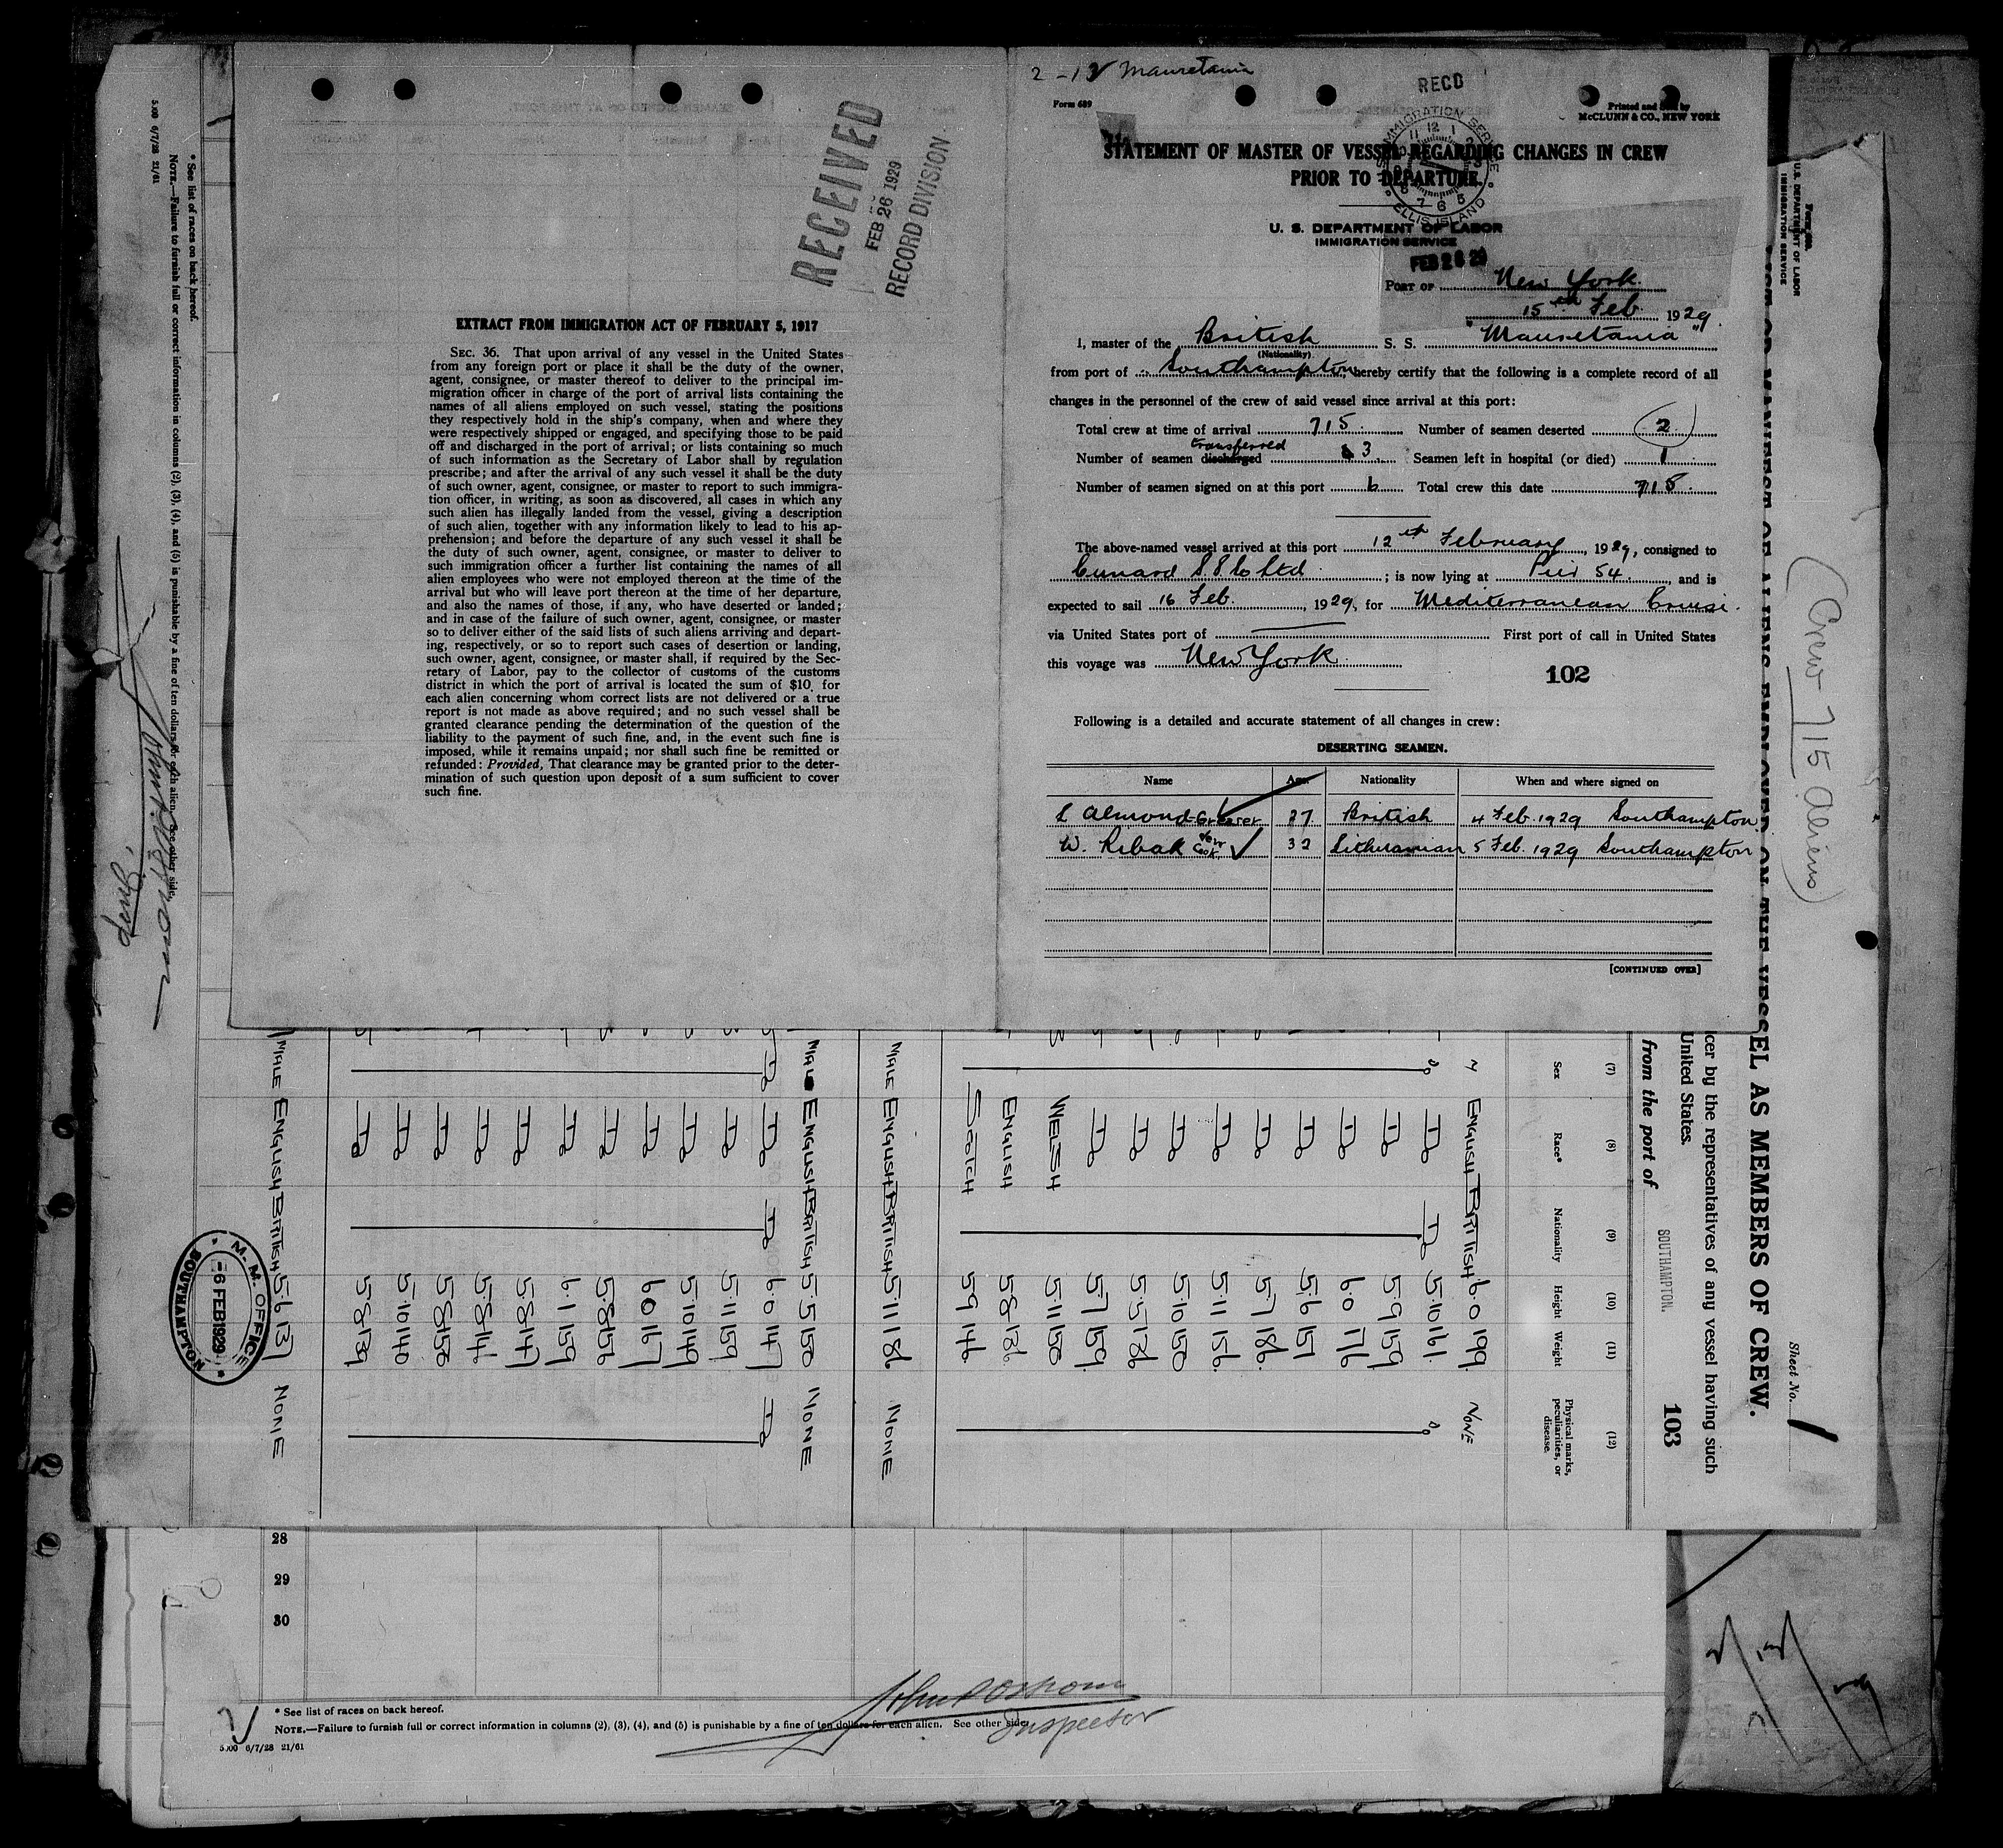 2 - 12 Mauretania
Form 689
RECD
Printed and Sold by
McCLUNN & CO., NEW YORK
IMMIGRATION SERVICE
ELLIS ISLAND
STATEMENT OF MASTER OF VESSEL REGARDING CHANGES IN CREW
PRIOR TO DEPARTURE.
U. S. DEPARTMENT OF LABOR
IMMIGRATION SERVICE
FEB 26 29
PORT OF New York.
15th Feb. 1929.
I, master of the British S. S. "Mauretania"
(Nationality)
from port of Southampton, hereby certify that the following is a complete record of all
changes in the personnel of the crew of said vessel since arrival at this port:
Total crew at time of arrival 715. Number of seamen deserted 2
transferred
Number of seamen discharged 3. Seamen left in hospital (or died) 1
Number of seamen signed on at this port 6 Total crew this date 715.
The above-named vessel arrived at this port 12th February, 1929, consigned to
Cunard S.S. Co Ltd. ; is now lying at Pier 54., and is
expected to sail 16 Feb., 1929, for Mediterranean Cruise.
via United States port of First port of call in United States
this voyage was New York.
102
Following is a detailed and accurate statement of all changes in crew:
DESERTING SEAMEN.
Name Age Nationality When and where signed on
L Almond Greaser 27 British 4 Feb. 1929 Southampton
W. Ribak Cook 32 Lithuanian 5 Feb. 1929 Southampton
[CONTINUED OVER]
RECEIVED
FEB 26 1929
RECORD DIVISION
EXTRACT FROM IMMIGRATION ACT OF FEBRUARY 5, 1917
SEC. 36. That upon arrival of any vessel in the United States
from any foreign port or place it shall be the duty of the owner,
agent, consignee, or master thereof to deliver to the principal im-
migration officer in charge of the port of arrival lists containing the
names of all aliens employed on such vessel, stating the positions
they respectively hold in the ship's company, when and where they
were respectively shipped or engaged, and specifying those to be paid
off and discharged in the port of arrival; or lists containing so much
of such information as the Secretary of Labor shall by regulation
prescribe; and after the arrival of any such vessel it shall be the duty
of such owner, agent, consignee, or master to report to such immigra-
tion officer, in writing, as soon as discovered, all cases in which any
such alien has illegally landed from the vessel, giving a description
of such alien, together with any information likely to lead to his ap-
prehension; and before the departure of any such vessel it shall be
the duty of such owner, agent, consignee, or master to deliver to
such immigration officer a further list containing the names of all
alien employees who were not employed thereon at the time of the
arrival but who will leave port thereon at the time of her departure,
and also the names of those, if any, who have deserted or landed;
and in case of the failure of such owner, agent, consignee, or master
so to deliver either of the said lists of such aliens arriving and depart-
ing, respectively, or so to report such cases of desertion or landing,
such owner, agent, consignee, or master shall, if required by the Sec-
retary of Labor, pay to the collector of customs of the customs
district in which the port of arrival is located the sum of $10 for
each alien concerning whom correct lists are not delivered or a true
report is not made as above required; and no such vessel shall be
granted clearance pending the determination of the question of the
liability to the payment of such fine, and, in the event such fine is
imposed, while it remains unpaid; nor shall such fine be remitted or
refunded: Provided, That clearance may be granted prior to the deter-
mination of such question upon deposit of a sum sufficient to cover
such fine.
U.S. DEPARTMENT OF LABOR
IMMIGRATION SERVICE
(Crew 715 aliens)
Sheet No. 1
VESSEL AS MEMBERS OF CREW.
cer by the representatives of any vessel having such
United States.
from the port of SOUTHAMPTON.
103
(7) (8) (9) (10) (11) (12)
Sex Race* Nationality Height Weight Physical marks, peculiarities, or disease.
M ENGLISH BRITISH 6.0 199 NONE
Do Do Do 5.10 161. Do
Do 5.9 159
Do 6.0 176
Do 5.6 151
Do 5.7 186.
Do 5.11 156.
Do 5.10 150
Do 5.5 178
Do 5.7 159.
WELSH 5.11 150
ENGLISH 5.8 136
SCOTCH 5.9 144
MALE ENGLISH BRITISH 5.11 186 NONE
MALE ENGLISH BRITISH 5.5 150 NONE
Do Do Do 6.0 147 Do
Do 5.11 159
Do 5.10 149
Do 6.0 167
Do 5.8 156
Do 6.1 159
Do 5.8 147
Do 5.8 146
Do 5.8 150
Do 5.10 140
Do 5.8 139
MALE ENGLISH BRITISH 5.6 137 NONE
M. M. OFFICE
-6 FEB 1929
SOUTHAMPTON
* See list of races on back hereof.
NOTE.—Failure to furnish full or correct information in columns (2), (3), (4), and (5) is punishable by a fine of ten dollars for each alien. See other side.
5,000 6/7/28 21/61
28
29
30
John P Osborn
Inspector
* See list of races on back hereof.
NOTE.—Failure to furnish full or correct information in columns (2), (3), (4), and (5) is punishable by a fine of ten dollars for each alien. See other side.
5,000 6/7/28 21/61